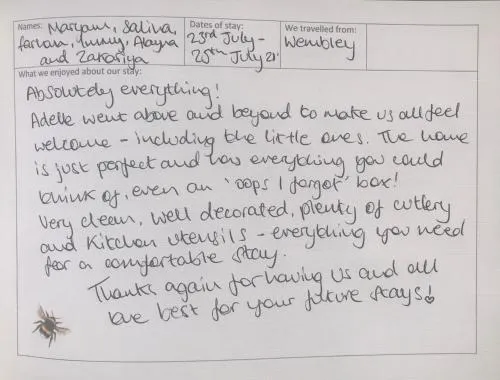 Names: Maryam, Saliva,
farvan, Immy, Alayna
and Zakariya
Dates of stay:
23rd July -
25th July 21'
We travelled from:
Wembley
What we enjoyed about our stay:
Absolutely everything!
Adelle went above and beyond to make us all feel
welcome - including the little ones. The home
is just perfect and has everything you could
think of, even an 'oops I forgot' box!
Very clean, well decorated, plenty of cutlery
and kitchen utensils - everything you need
for a comfortable stay.
Thanks again for having us and all
the best for your future stays!